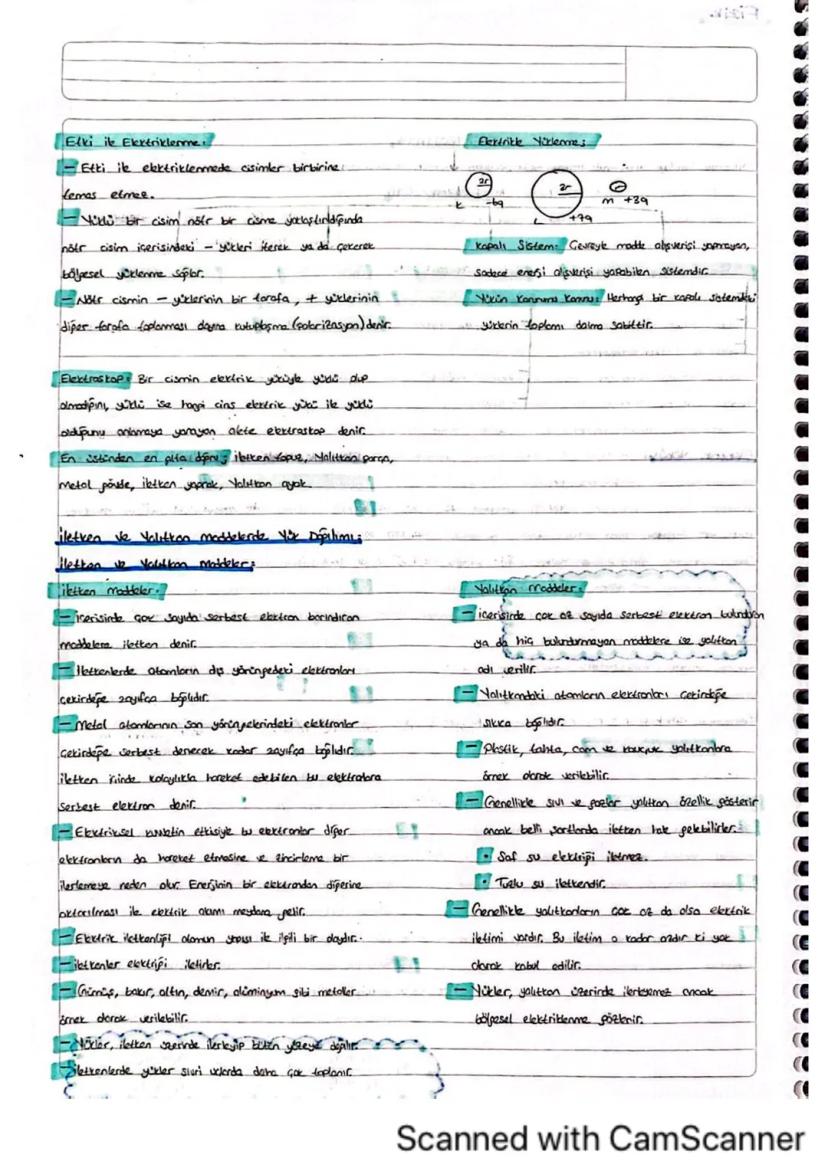 Fizik.
Etki ile Elektriklenme:
- Etki ile elektriklenmede cisimler birbirine
temas etmez.
- Yüklü bir cisim nötr bir cisme yaklaştırıldığında
nötr cisim içerisindeki - yükleri iterek ya da çekerek
bölgesel yüklenme sağlar.
- Nötr cismin - yüklerinin bir tarafa, + yüklerinin
diğer tarafa toplanması olayına kutuplaşma (polarizasyon) denir.
Elektroskop: Bir cismin elektrik yüküyle yüklü olup
olmadığını, yüklü ise hangi cins elektrik yükü ile yüklü
olduğunu anlamaya yarayan alete elektroskop denir.
En üstünden en alta doğru; iletken topuz, Yalıtkan parça,
metal gövde, iletken yaprak, Yalıtkan ayak.
Elektrikle Yüklenme;
2r 2r
K -6q L +7q M +3q
Kapalı Sistem: Çevreyle madde alışverişi yapmayan,
sadece enerji alışverişi yapabilen sistemdir.
Yükün Korunumu Kanunu: Herhangi bir kapalı sistemdeki
yüklerin toplamı daima sabittir.
İletken ve Yalıtkan maddelerde Yük Dağılımı;
İletken ve Yalıtkan Maddeler;
iletken maddeler:
- içerisinde çok sayıda serbest elektron barındıran
maddelere iletken denir.
- İletkenlerde atomların dış yörüngedeki elektronları
çekirdeğe zayıfça bağlıdır.
- Metal atomlarının son yörüngelerindeki elektronlar
çekirdeğe serbest denecek kadar zayıfça bağlıdır.
iletken içinde kolaylıkla hareket edebilen bu elektronlara
serbest elektron denir.
- Elektriksel kuvvetin etkisiyle bu elektronlar diğer
elektronların da hareket etmesine ve zincirleme bir
ilerlemeye neden olur. Enerjinin bir elektrondan diğerine
aktarılması ile elektrik akımı meydana gelir.
- Elektrik iletkenliği atomun yapısı ile ilgili bir olaydır.
- iletkenler elektriği iletirler.
- Gümüş, bakır, altın, demir, alüminyum gibi metaller
örnek olarak verilebilir.
- Yükler, iletken üzerinde ilerleyip bütün yüzeye dağılır.
- İletkenlerde yükler sivri uçlarda daha çok toplanır.
Yalıtkan maddeler:
- içerisinde çok az sayıda serbest elektron bulunduran
ya da hiç bulundurmayan maddelere ise yalıtkan
adı verilir.
- Yalıtkandaki atomların elektronları çekirdeğe
sıkıca bağlıdır.
- Plastik, tahta, cam ve kauçuk yalıtkanlara
örnek olarak verilebilir.
- Genellikle sıvı ve gazlar yalıtkan özellik gösterir
ancak belli şartlarda iletken hale gelebilirler.
• Saf su elektriği iletmez.
• Tuzlu su iletkendir.
- Genellikle yalıtkanların çok az da olsa elektrik
iletimi vardır. Bu iletim o kadar azdır ki yok
olarak kabul edilir.
- Yükler, yalıtkan üzerinde ilerleyemez ancak
bölgesel elektriklenme gözlenir.
Scanned with CamScanner